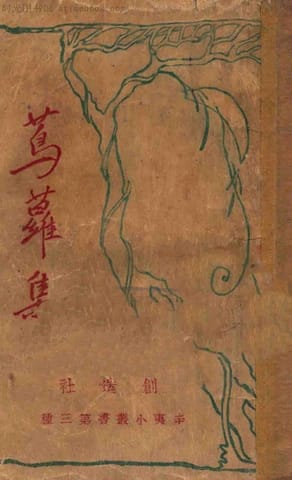 蔦蘿集
創造社
辛夷小叢書第三種